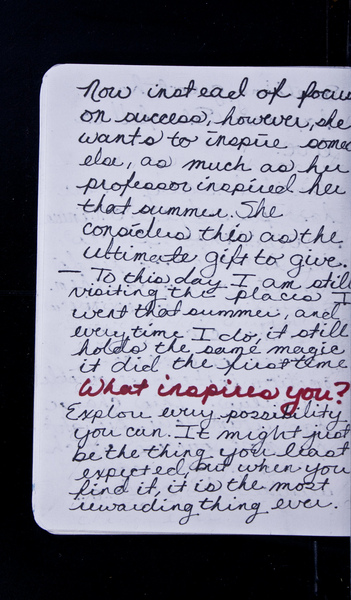 Now instead of focus
on success, however, she
wants to inspire some
else, as much as her
professor inspired her
that summer. She
considers this as the
ultimate gift to give.
— To this day I am still
visiting the places I
went that summer, and
every time I do, it still
holds the same magic
it did the first time
What inspires you?
Explore every possibility
you can. It might just
be the thing you least
expected, but when you
find it, it is the most
rewarding thing ever.